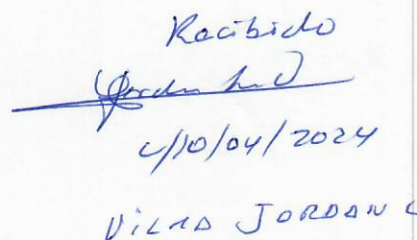 Recibido
10/04/2024
VILMA JORDAN